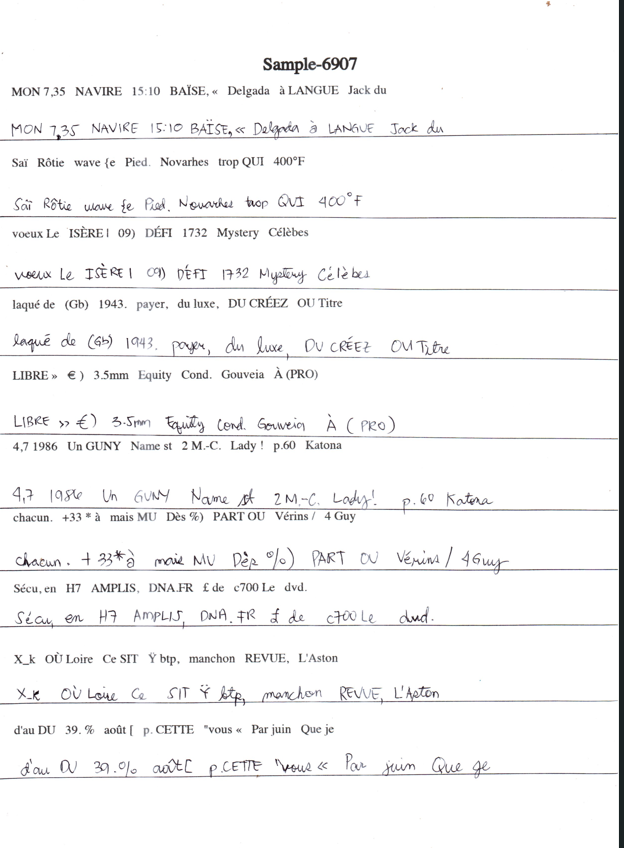 Sample-6907
MON 7,35 NAVIRE 15:10 BAÏSE, « Delgada à LANGUE Jack du
MON 7,35 NAVIRE 15:10 BAÏSE, « Delgada à LANGUE Jack du
Saï Rôtie wave {e Pied. Novarhes trop QUI 400°F
Saï Rôtie wave {e Pied. Novarhes trop QUI 400°F
voeux Le ISÈRE l 09) DÉFI 1732 Mystery Célèbes
voeux Le ISÈRE l 09) DÉFI 1732 Mystery Célèbes
laqué de (Gb) 1943. payer, du luxe, DU CRÉEZ OU Titre
laqué de (Gb) 1943. payer, du luxe, DU CRÉEZ OU Titre
LIBRE » € ) 3.5mm Equity Cond. Gouveia À (PRO)
LIBRE » €) 3.5mm Equity Cond. Gouveia À (PRO)
4,7 1986 Un GUNY Name st 2 M.-C. Lady ! p.60 Katona
4,7 1986 Un GUNY Name st 2 M.-C. Lady! p.60 Katona
chacun. +33 * à mais MU Dès %) PART OU Vérins / 4 Guy
chacun. +33* à mais MU Dès %) PART OU Vérins / 4 Guy
Sécu, en H7 AMPLIS, DNA.FR £ de c700 Le dvd.
Sécu, en H7 AMPLIS, DNA.FR £ de c700 Le dvd.
X_k OÙ Loire Ce SIT Ÿ btp, manchon REVUE, L'Aston
X_k OÙ Loire Ce SIT Ÿ btp, manchon REVUE, L'Aston
d'au DU 39. % août [ p. CETTE "vous « Par juin Que je
d'au DU 39.% août [ p.CETTE "vous « Par juin Que je